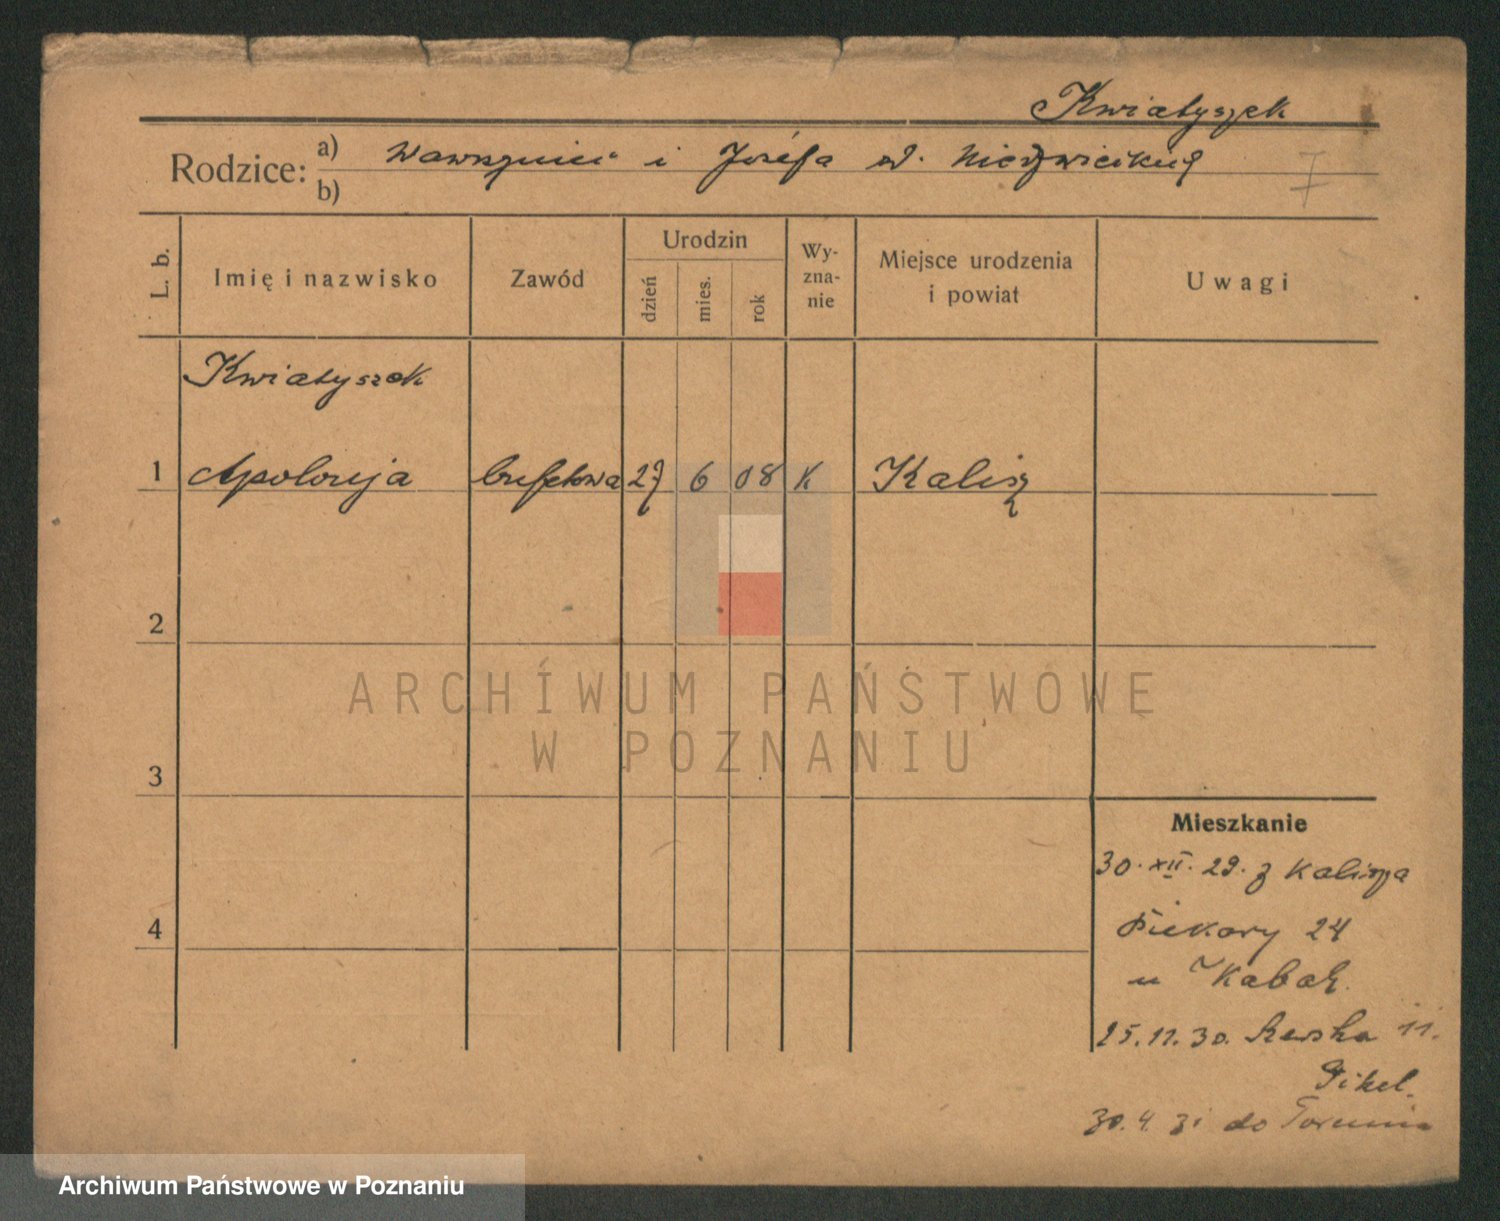 Kwiatyszek
Rodzice: a) Wawrzyniec i Józefa
b)
L. b.
Imię i nazwisko
Zawód
Urodzin
dzień
mies.
rok
Wy-
zna-
nie
Miejsce urodzenia
i powiat
Uwagi
Kwiatyszek
1 Apolonja bufetowa 27 6 08 K Kalisz
2
3
4
Mieszkanie
30. XII. 29. z Kalisza
Piekary 24
u Kabał.
25.11.30. 11.
Pikel.
30. 4. 31 do Torunia
ARCHIWUM PAŃSTWOWE
W POZNANIU
Archiwum Państwowe w Poznaniu